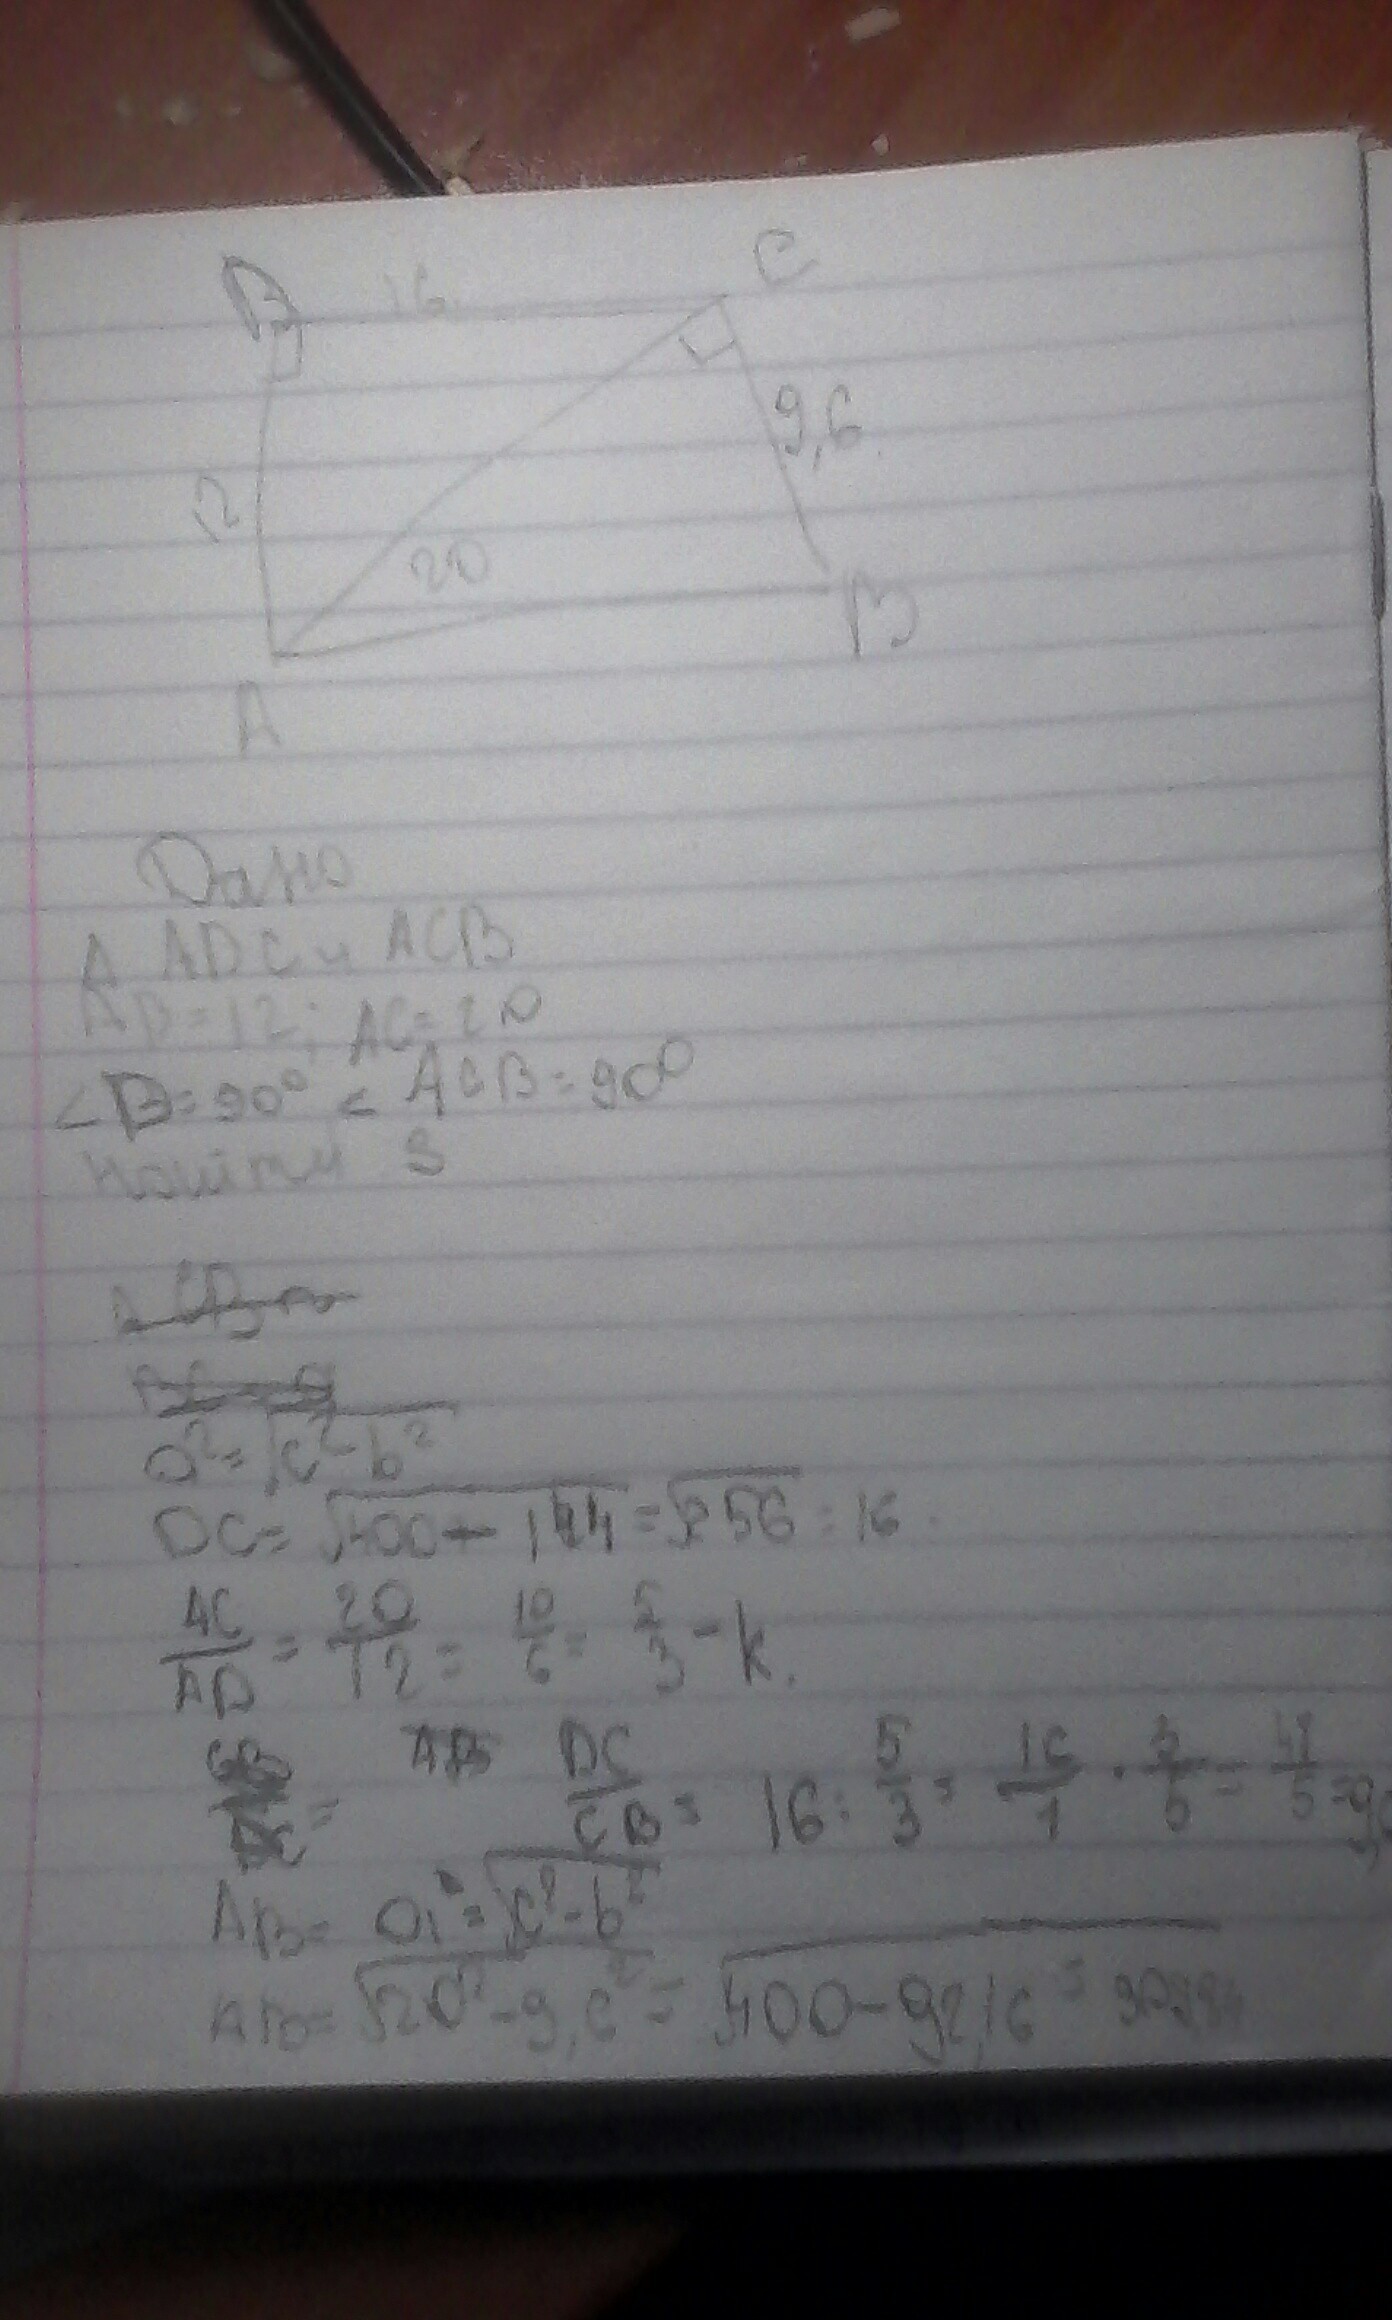 D 16 C
9,6
12
20
B
A
Дано
Δ ADC и ACB
AD=12; AC=20
∠D=90° ∠ ACB=90°
Найти S
a²=√c²-b²
DC= √400-144=√256=16.
AC/AD = 20/12 = 10/6 = 5/3 - k.
AB DC/CB = 16:5/3= 16/1 · 3/5 = 48/5 =9,6
AB= a²=√c²-b²
AB=√20²-9,6²= √400-92,16 =